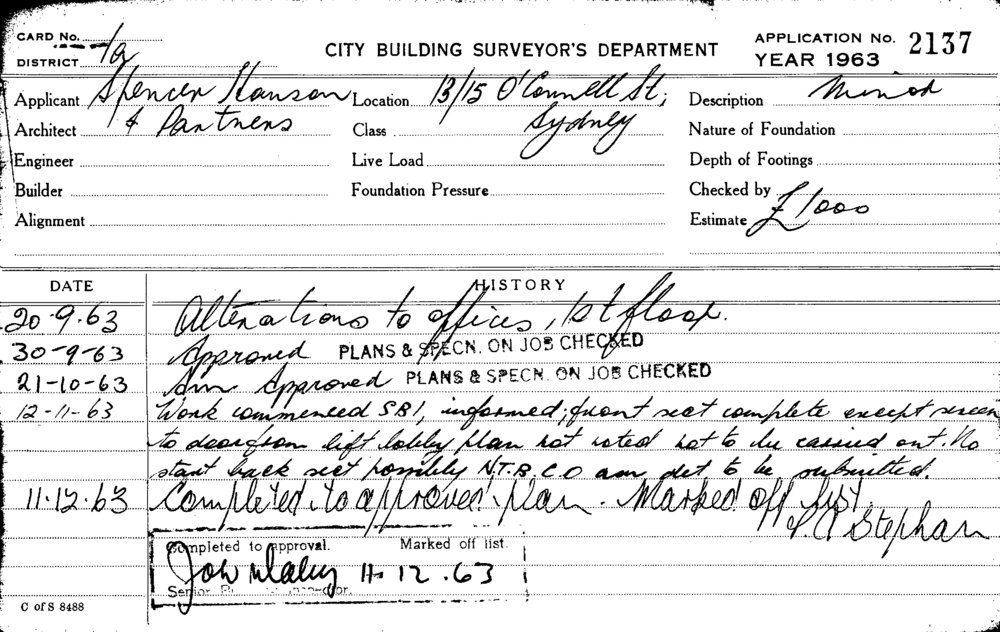 CARD No.
DISTRICT 1a
CITY BUILDING SURVEYOR'S DEPARTMENT
APPLICATION No. 2137
YEAR 1963
Applicant Spencer Hanson Location 13/15 O'Connell St, Description Minor
Architect & Partners Class Sydney Nature of Foundation
Engineer Live Load Depth of Footings
Builder Foundation Pressure Checked by
Alignment Estimate £1000
DATE HISTORY
20.9.63 Alterations to offices, 1st floor.
30-9-63 Approved PLANS & SPECN. ON JOB CHECKED
21-10-63 Am Approved PLANS & SPECN. ON JOB CHECKED
12-11-63 Work commenced SBI, informed, front sect complete except screen
to door from lift lobby plan not noted not to be carried out. No
start back sect possibly N.T.B.C.O am det to be submitted.
11.12.63 Completed to approved plan. Marked off list.
Stephan
Completed to approval. Marked off list.
11.12.63
Senior
C of S 8488